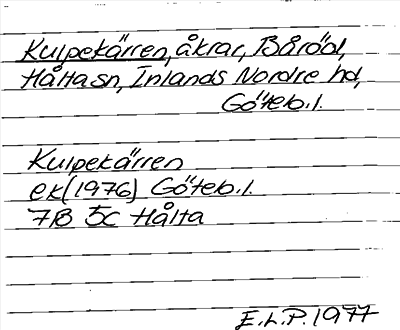 Kulpekärren, åkrar, Båröd,
Hålta sn, Inlands Nordre hd,
Göteb.l.
Kulpekärren
ek (1976) Göteb.l.
7B 5c Hålta
E.L.P. 1977